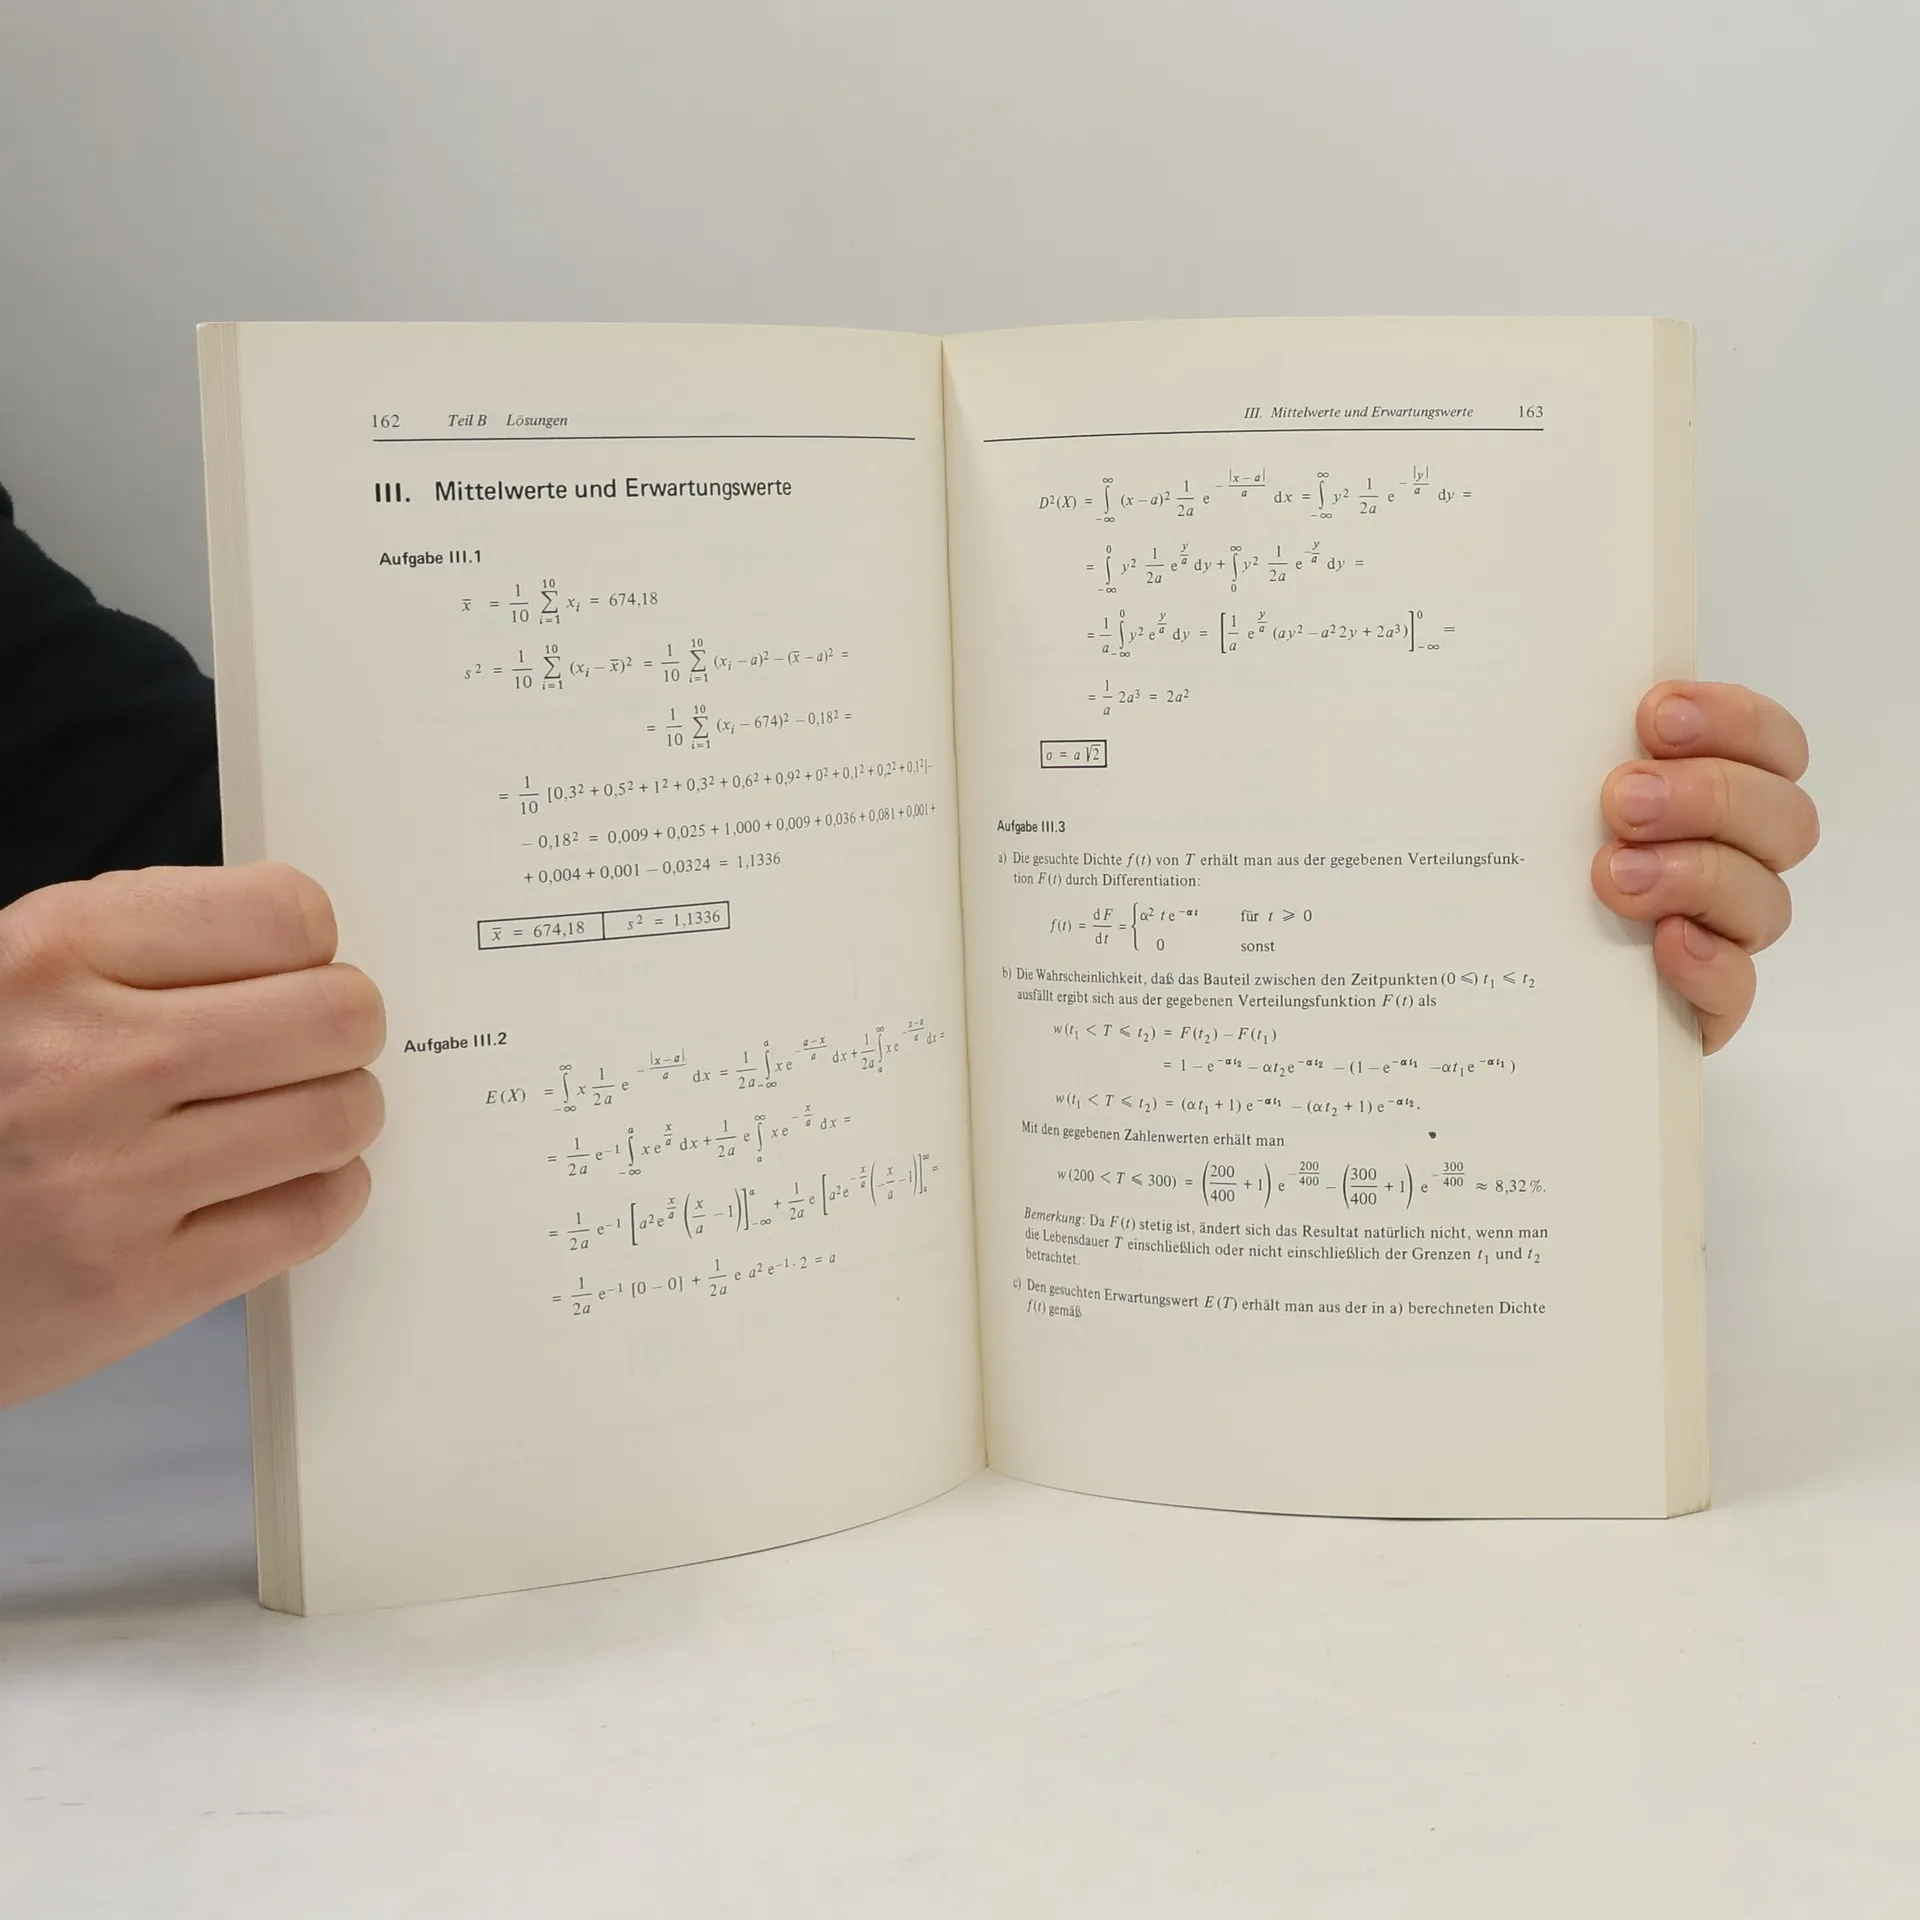 162 Teil B Lösungen
III. Mittelwerte und Erwartungswerte
Aufgabe III.1
x̄ = 1/10 ∑_{i=1}^{10} x_i = 674,18
s² = 1/10 ∑_{i=1}^{10} (x_i − x̄)² = 1/10 ∑_{i=1}^{10} (x_i − a)² − (x̄ − a)² =
= 1/10 ∑_{i=1}^{10} (x_i − 674)² − 0,18² =
= 1/10 [0,3² + 0,5² + 1² + 0,3² + 0,6² + 0,9² + 0² + 0,1² + 0,2² + 0,1²] −
− 0,18² = 0,009 + 0,025 + 1,000 + 0,009 + 0,036 + 0,081 + 0,001 +
+ 0,004 + 0,001 − 0,0324 = 1,1336
x̄ = 674,18 s² = 1,1336
Aufgabe III.2
E(X) = ∫_{−∞}^{∞} x 1/2a e^{−|x−a|/a} dx = 1/2a ∫_{−∞}^{a} x e^{−(a−x)/a} dx + 1/2a ∫_{a}^{∞} x e^{−(x−a)/a} dx =
= 1/2a e^{−1} ∫_{−∞}^{a} x e^{x/a} dx + 1/2a e ∫_{a}^{∞} x e^{−x/a} dx =
= 1/2a e^{−1} [a² e^{x/a} (x/a − 1)]_{−∞}^{a} + 1/2a e [a² e^{−x/a} (−x/a − 1)]_{a}^{∞} =
= 1/2a e^{−1} [0 − 0] + 1/2a e a² e^{−1} · 2 = a
III. Mittelwerte und Erwartungswerte 163
D²(X) = ∫_{−∞}^{∞} (x − a)² 1/2a e^{−|x−a|/a} dx = ∫_{−∞}^{∞} y² 1/2a e^{−|y|/a} dy =
= ∫_{−∞}^{0} y² 1/2a e^{y/a} dy + ∫_{0}^{∞} y² 1/2a e^{−y/a} dy =
= 1/a ∫_{−∞}^{0} y² e^{y/a} dy = [1/a e^{y/a} (ay² − a² 2y + 2a³)]_{−∞}^{0} =
= 1/a 2a³ = 2a²
σ = a √2
Aufgabe III.3
a) Die gesuchte Dichte f(t) von T erhält man aus der gegebenen Verteilungsfunk-
tion F(t) durch Differentiation:
f(t) = dF/dt = { α² t e^{−αt} für t ⩾ 0
0 sonst
b) Die Wahrscheinlichkeit, daß das Bauteil zwischen den Zeitpunkten (0 ⩽) t₁ ⩽ t₂
ausfällt ergibt sich aus der gegebenen Verteilungsfunktion F(t) als
w(t₁ < T ⩽ t₂) = F(t₂) − F(t₁)
= 1 − e^{−αt₂} − αt₂e^{−αt₂} − (1 − e^{−αt₁} − αt₁e^{−αt₁})
w(t₁ < T ⩽ t₂) = (αt₁ + 1) e^{−αt₁} − (αt₂ + 1) e^{−αt₂}.
Mit den gegebenen Zahlenwerten erhält man
w(200 < T ⩽ 300) = (200/400 + 1) e^{−200/400} − (300/400 + 1) e^{−300/400} ≈ 8,32 %.
Bemerkung: Da F(t) stetig ist, ändert sich das Resultat natürlich nicht, wenn man
die Lebensdauer T einschließlich oder nicht einschließlich der Grenzen t₁ und t₂
betrachtet.
c) Den gesuchten Erwartungswert E(T) erhält man aus der in a) berechneten Dichte
f(t) gemäß